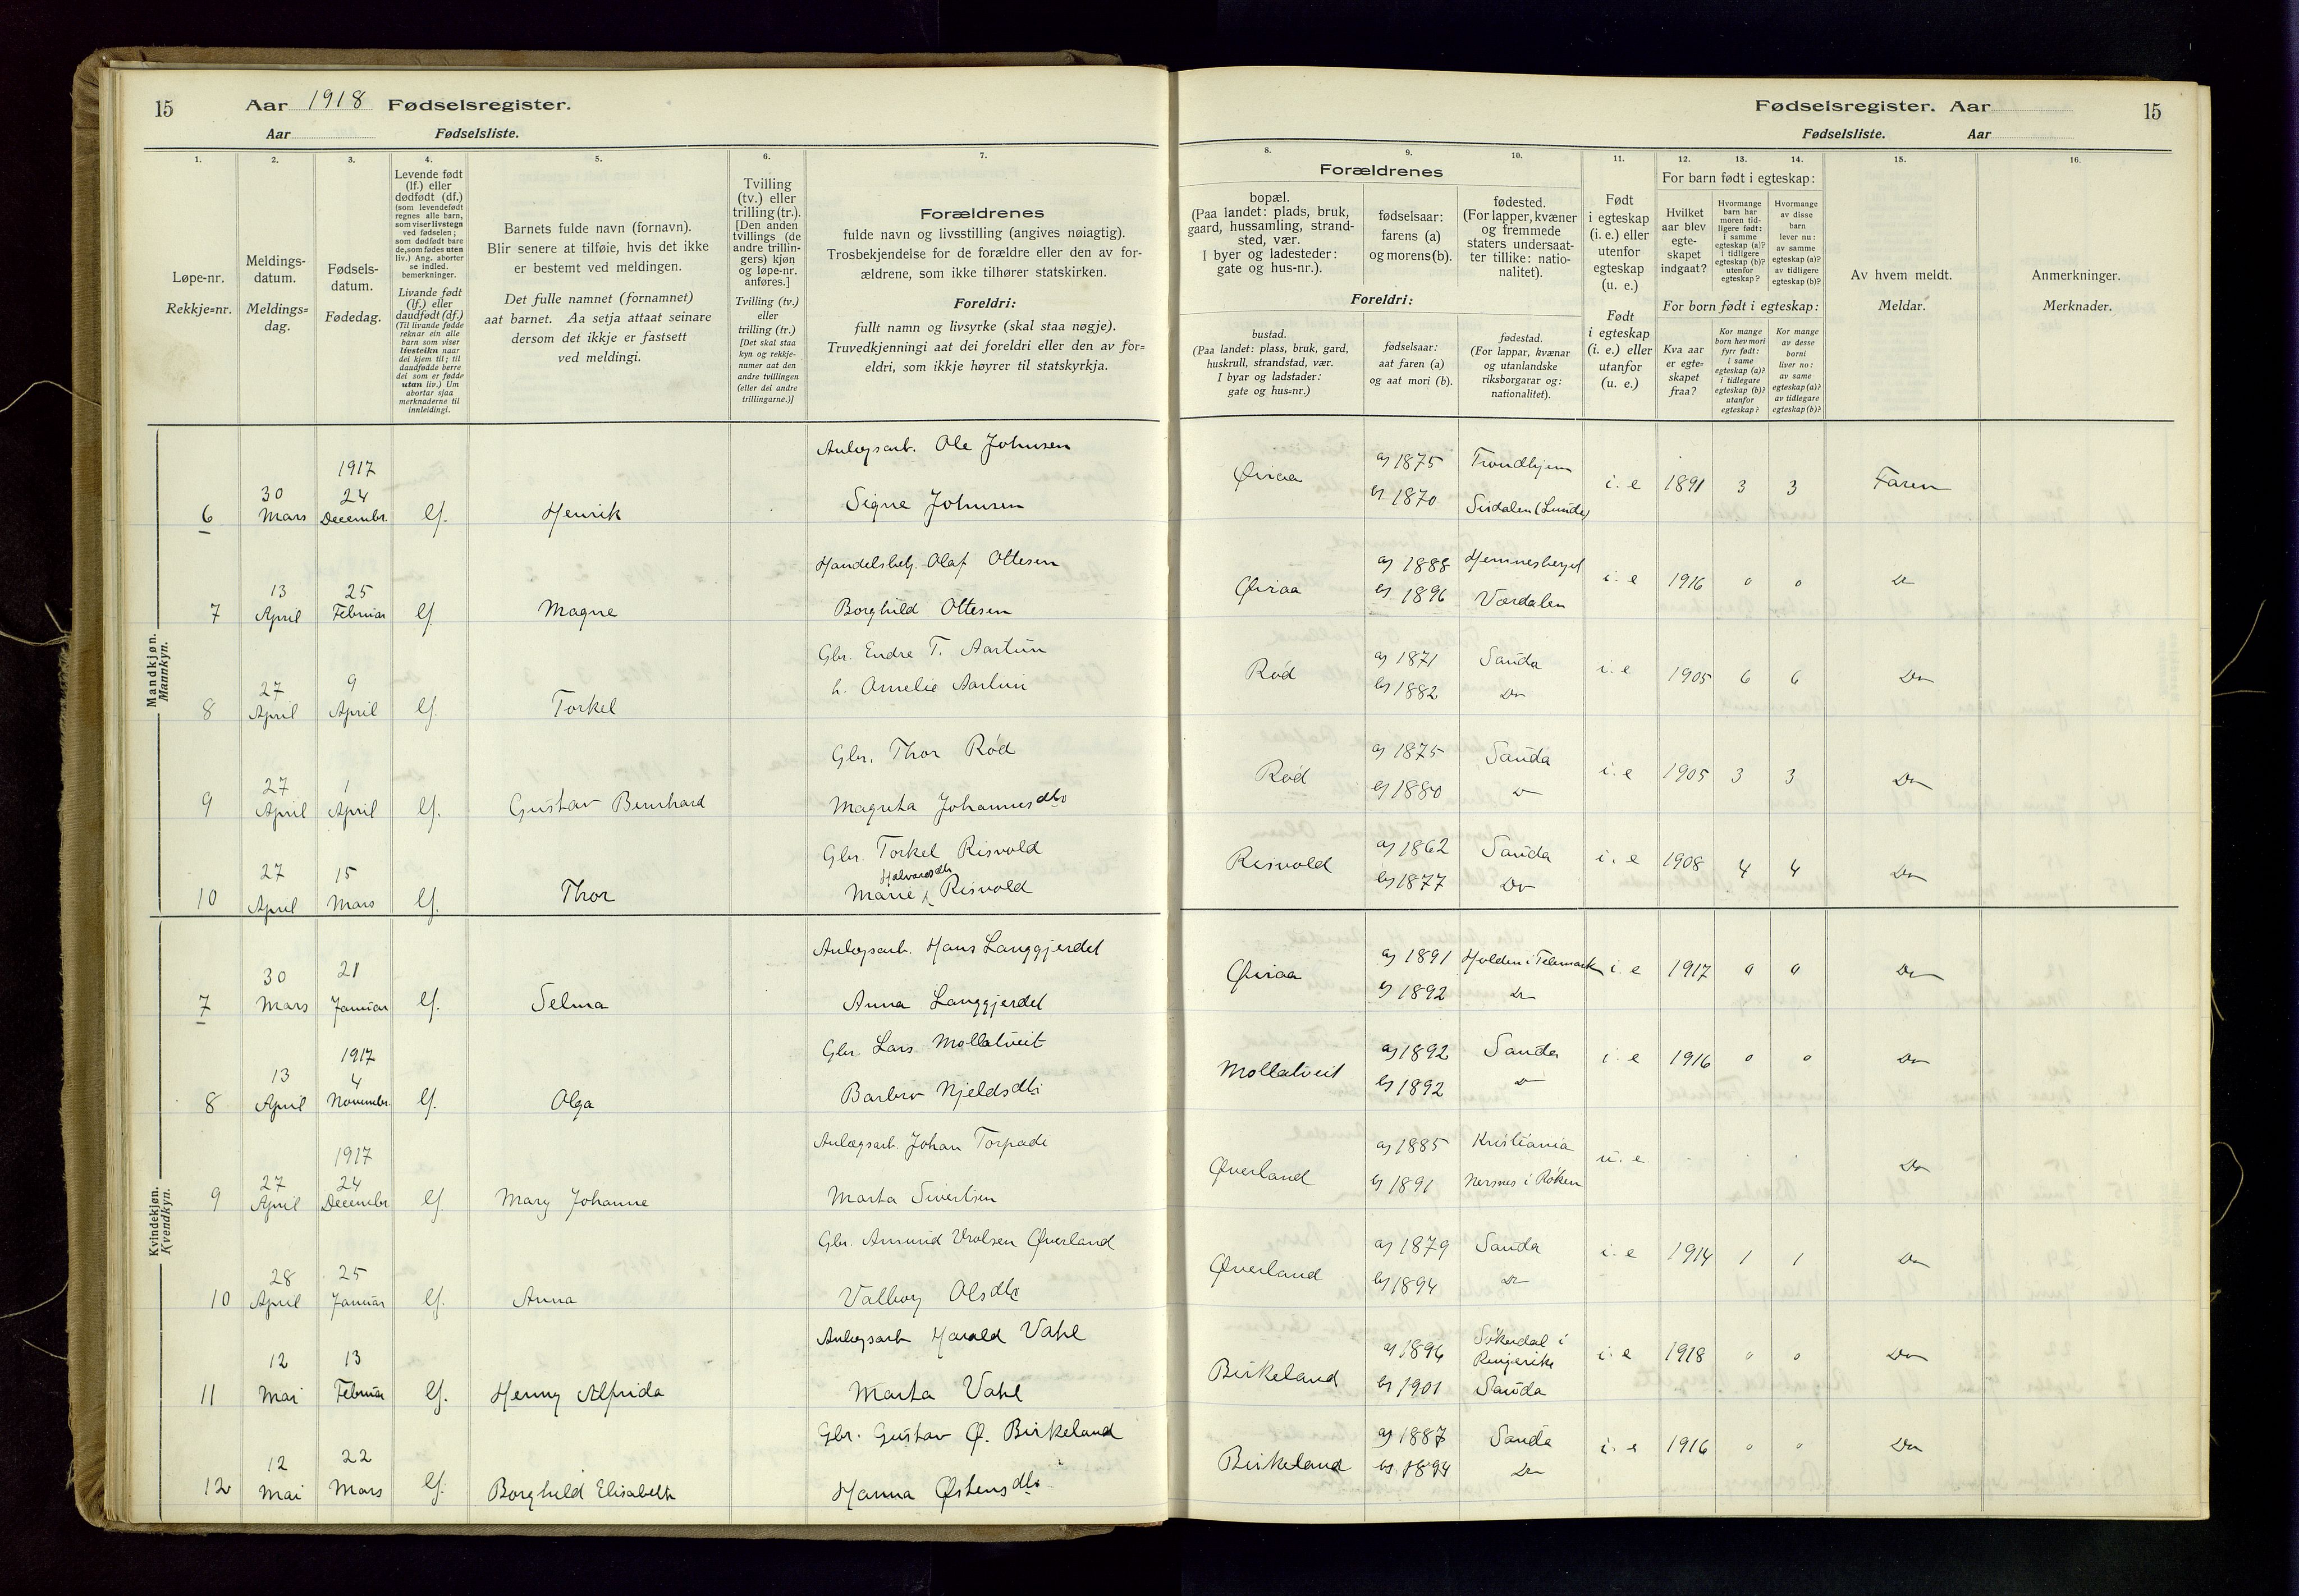 15 Aar 1918 Fødselsregister.
Aar Fødselsliste.
Fødselsregister. Aar 15
Fødselsliste. Aar
1. 2. 3. 4. 5. 6. 7. 8. 9. 10. 11. 12. 13. 14. 15. 16.
Løpe-nr.
Rekkje=nr.
Meldings-
datum.
Meldings=
dag.
Fødsels-
datum.
Fødedag.
Levende født
(lf.) eller
dødfødt (df.)
(som levendefødt
regnes alle barn,
som viser livstegn
ved fødselen;
som dødfødt bare
de, som fødes uten
liv.) Ang. aborter
se indled.
bemerkninger.
Livande født
(lf.) eller
daudfødt (df.)
(Til livande fødde
reknar ein alle
barn som viser
livsteikn naar
dei kjem til; til
daudfødde berre
dei som er fødde
utan liv.) Um
abortar sjaa
merknaderne til
innleidingi.
Barnets fulde navn (fornavn).
Blir senere at tilføie, hvis det ikke
er bestemt ved meldingen.
Det fulle namnet (fornamnet)
aat barnet. Aa setja attaat seinare
dersom det ikkje er fastsett
ved meldingi.
Tvilling
(tv.) eller
trilling (tr.).
[Den anden
tvillings (de
andre trillin-
gers) kjøn
og løpe-nr.
anføres.]
Tvilling (tv.)
eller
trilling (tr.)
[Det skal staa
kyn og rekkje-
numer aat den
andre tvillingen
(eller dei andre
trillingarne.)]
Forældrenes
fulde navn og livsstilling (angives nøiagtig).
Trosbekjendelse for de forældre eller den av for-
ældrene, som ikke tilhører statskirken.
Foreldri:
fullt namn og livsyrke (skal staa nøgje).
Truvedkjenningi aat dei foreldri eller den av for=
eldri, som ikkje høyrer til statskyrkja.
Forældrenes
bopæl.
(Paa landet: plads, bruk,
gaard, hussamling, strand-
sted, vær.
I byer og ladesteder:
gate og hus-nr.).
fødselsaar:
farens (a)
og morens (b).
fødested.
(For lapper, kvæner
og fremmede
staters undersaat-
ter tillike: natio-
nalitet).
Foreldri:
bustad.
(Paa landet: plass, bruk, gard,
huskrull, strandstad, vær.
I byar og ladstader:
gate og hus=nr.)
fødselsaar:
aat faren (a)
og aat mori (b).
fødestad.
(For lappar, kvænar
og utanlandske
riksborgarar og:
nationalitet).
Født
i egteskap
(i. e.) eller
utenfor
egteskap
(u. e.)
Født
i egteskap
(i. e.) eller
utanfor
(u. e.)
For barn født i egteskap:
Hvilket
aar blev
egte-
skapet
indgaat?
Hvormange
barn har
moren tid-
ligere født:
i samme
egteskap (a)?
i tidligere
egteskap (b)?
utenfor
egteskap?
Hvormange
av disse
barn
lever nu:
av samme
egteskap (a)?
av tidligere
egteskap (b)?
For born født i egteskap:
Kva aar
er egte=
skapet
fraa?
Kor mange
born hev mori
fyrr født:
i same
egteskap (a)?
i tidlegare
egteskap (b)?
utanfor
egteskap?
Kor mange
av desse
borni
liver no:
av same
egteskap (a)?
av tidlegare
egteskap (b)?
Av hvem meldt.
Meldar.
Anmerkninger.
Merknader.
Mandkjøn.
Mannkyn.
6 30 Mars 1917 24 Decembr. lf. Henrik Anlægsarb. Ole Johnsen
Signe Johnsen
Øiraa a) 1875 b) 1870 Trondhjem Sirdalen (Lunde) i. e 1891 3 3 Faren
7 13 April 25 Februar lf. Magne Handelsbetj. Olaf Ottesen
Borghild Ottesen
Øiraa a) 1888 b) 1896 Hemnesberget Værdalen i. e 1916 0 0 Do
8 27 April 9 April lf. Torkel Gbr. Endre T. Aartun
h. Amelie Aartun
Rød a) 1871 b) 1882 Sauda Do i. e 1905 6 6 Do
9 27 April 1 April lf. Gustav Bernhard Gbr. Thor Rød
Magreta Johannesdtr
Rød a) 1875 b) 1880 Sauda Do i. e 1905 3 3 Do
10 27 April 15 Mars lf. Thor Gbr. Torkel Risvold
Marie Halvarsdtr Risvold
Risvold a) 1862 b) 1877 Sauda Do i. e 1908 4 4 Do
Kvindekjøn.
Kvendkyn.
7 30 Mars 21 Januar lf. Selma Anlægsarb. Hans Langgjerdet
Anna Langgjerdet
Øiraa a) 1891 b) 1892 Holden i Telemark Do i. e 1917 0 0 Do
8 13 April 1917 4 Novembr. lf. Olga Gbr. Lars Mollatveit
Barbro Njeldsdtr
Mollatveit a) 1892 b) 1892 Sauda Do i. e 1916 0 0 Do
9 27 April 1917 24 Decembr lf. Mary Johanne Anlægsarb. Johan Torpadi
Marta Sivertsen
Øverland a) 1885 b) 1891 Kristiania Nersnes i Røken u. e. Do
10 28 April 25 Januar lf. Anna Gbr. Amund Vrolsen Øverland
Valborg Olsdtr
Øverland a) 1879 b) 1894 Sauda Do i. e 1914 1 1 Do
11 12 Mai 13 Februar lf. Henny Alfrida Anlægsarb Harald Vahl
Marta Vahl
Birkeland a) 1896 b) 1901 Ringerike Sauda i. e 1918 0 0 Do
12 12 Mai 22 Mars lf. Borghild Elisabeth Gbr. Gustav Ø. Birkeland
Hanna Østensdtr
Birkeland a) 1887 b) 1894 Sauda Do i. e 1916 0 0 Do